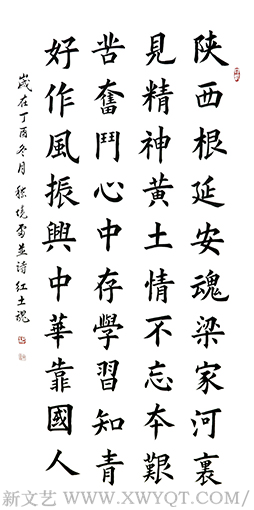 陝西根延安魂梁家河裏
見精神黃土情不忘本艱
苦奮鬥心中存學習知青
好作風振興中華靠國人
歲在丁酉冬月 曉雪並詩紅土魂
新文艺 WWW.XWYQT.COM/